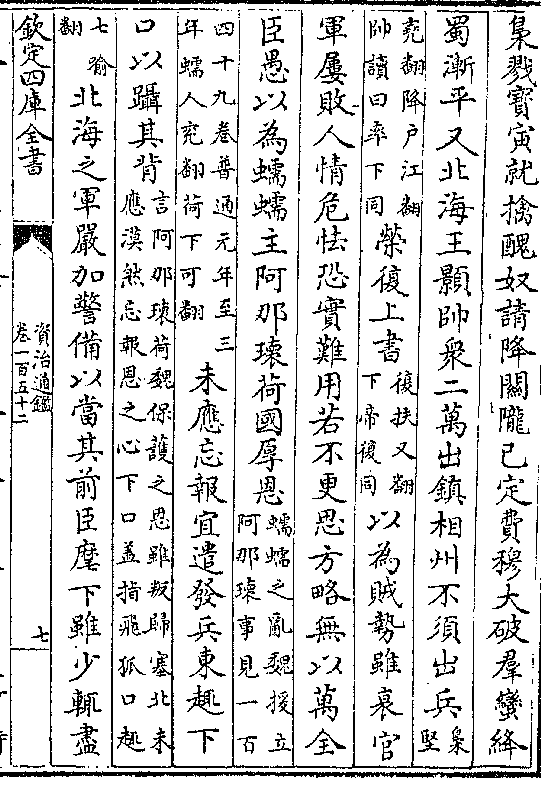 梟戮寳寅就擒醜奴請降關隴已定費穆大破羣蠻絳
蜀漸平又北海王顥帥衆二萬出鎮相州不須出兵梟堅
堯翻降户江翻
帥讀曰率下同
榮復上書復扶又翻
下帝復同
以為賊勢雖衰官
軍屢敗人情危怯恐實難用若不更思方略無以萬全
臣愚以為蠕蠕主阿那瓌荷國厚恩蠕蠕之亂魏援立
阿那瓌事見一百
四十九卷普通元年至三
年蠕人兖翻荷下可翻
未應忘報宜遣發兵東趣下
口以躡其背言阿那瓌荷魏保護之恩雖叛歸塞北未
應漠然忘報恩之心下口盖指飛狐口趣
七喻
翻
北海之軍嚴加警備以當其前臣麾下雖少輒盡
欽定四庫全書
資治通鑑
卷一百五十二
七